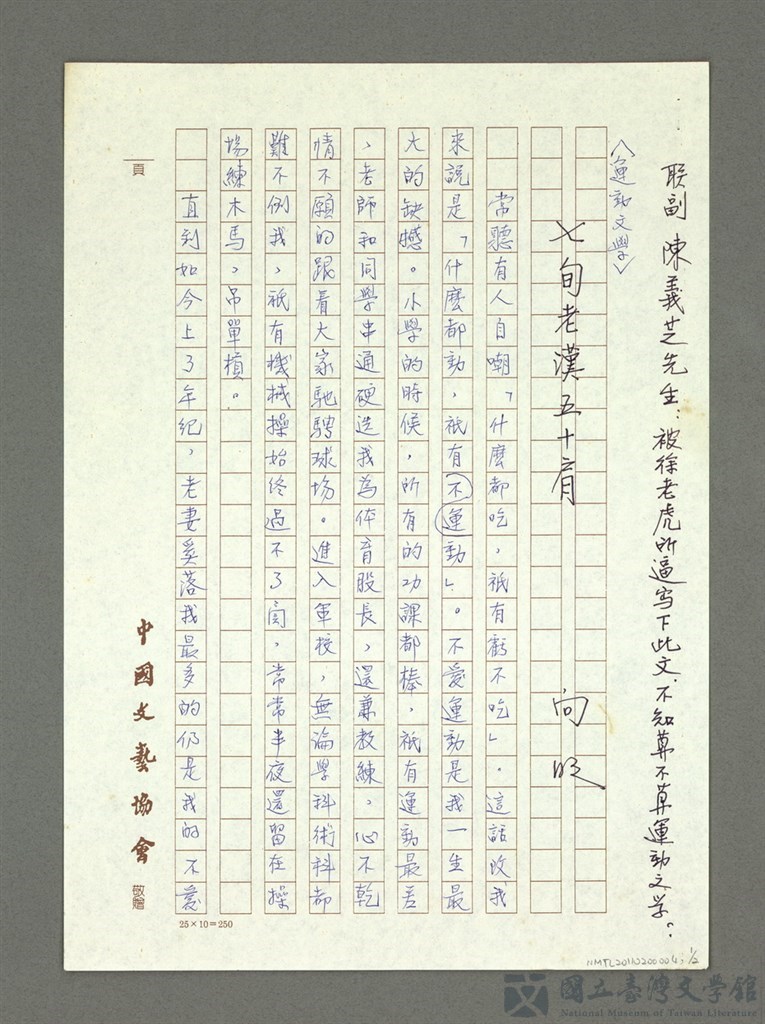 联副 陳義芝先生：被徐老虎所逼写下此文，不知算不算運動文学？
〈運動文學〉
七旬老漢五十肩 向明
常聽有人自嘲「什麼都吃，祇有虧不吃」。這話改我
來說是「什麼都動，祇有不運動」。不愛運動是我一生最
大的缺憾。小學的時候，所有的功課都棒，祇有運動最差
，老師和同學串通硬選我為体育股長，還兼教練，心不乾
情不願的跟着大家馳騁球場。進入軍校，無論學科術科都
難不倒我，祇有機械操始終過不了関，常常半夜還留在操
場練木馬，吊單槓。
直到如今上了年紀，老妻奚落我最多的仍是我的不愛
頁
中國文藝協會 敬贈
25×10=250
NMTL20110200004, 1/2
國立臺灣文學館
National Museum of Taiwan Literature